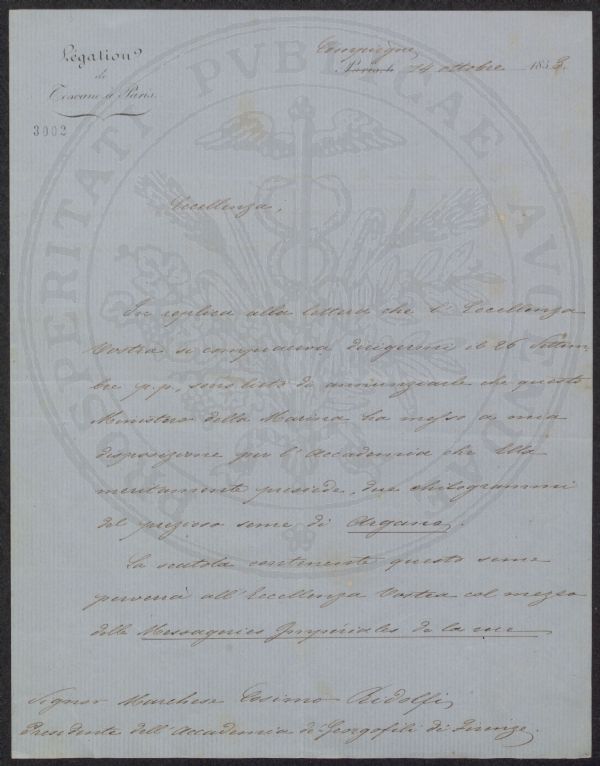 Légation
de
Toscane à Paris.
3002
Compiègne
Paris, le 14 ottobre 1858.
Eccellenza,
In replica alla lettera che l'Eccellenza
Vostra si compiaceva dirigermi il 26 Settem-
bre p.p., sono lieto di annunziarle che questo
Ministero della Marina ha messo a mia
disposizione per l'Accademia che Ella
meritamente presiede, due chilogrammi
del prezioso seme di Argano.
La scatola contenente questo seme
perverrà all'Eccellenza Vostra col mezzo
delle Messageries Impériales de la rue
Signor Marchese Cosimo Ridolfi
Presidente dell'Accademia dei Georgofili di Firenze.
PROSPERITATI PUBLICAE AVGENDAE